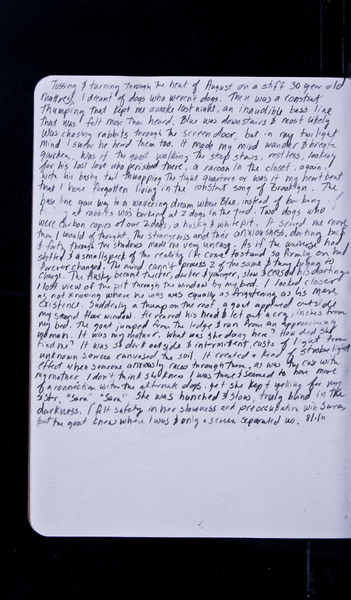 Tossing & turning through the heat of August on a stiff 30 year old
mattress, I dreamt of dogs who weren't dogs. There was a constant
thumping that kept me awake last night, an inaudible bass line
that was felt more than heard. Blue was downstairs & most likely
was chasing rabbits through the screen door, but in my twilight
mind I swear he heard them too. It made my mind wander & breath
quicken. Was it the ghost walking the steep stairs, restless, looking
for his lost love who perished there, a racoon in the closet, again,
with his bushy tail thumping the tight quarters or was it my heart beat
that I have forgotten living in the constant song of Brooklyn. The
base line gave way to a wavering dream where Blue, instead of barking
at rabbits was barking at 2 dogs in the yard. Two dogs who
were carbon copies of our 2 dogs, a husky & whirepit. It scared me more
than I would of thought. The strangeness and their alikeness, darting back
& forth through the shadows made me very uneasy. As if the universe had
shifted & a small speck of the reality I've come to stand so firmly on had
forever changed. The mind cannot process 2 of the same & they began to
change. The Husky became thicker, darker & younger, slow & ceased his darting.
I lost view of the pit through the window by my bed. I looked closer
as not knowing where he was was equally as frightening as his mere
existence. Suddenly a thump on the roof, a goat appeared outside
my second floor window. He reared his head & let out a cry, inches from
my bed. The goat jumped from the ledge & ran from an approaching
woman. It was my mother. What was she doing here? How had she
find me? It was so dark outside & intermittent casts of light from
unknown sources canvased the soil. It created a kind of strobe light
effect when someone anxiously races through them, as was the case with
my mother. I don't think she knew I was there & seemed to have more
of a connection with the alternate dogs, yet she kept yelling for my
sister. "Sara" "Sara". She was hunched & slow, truly blind in the
darkness. I felt safety in her slowness and preoccupation with Sara,
but the goat knew where I was & only a screen separated us. 8/1/11